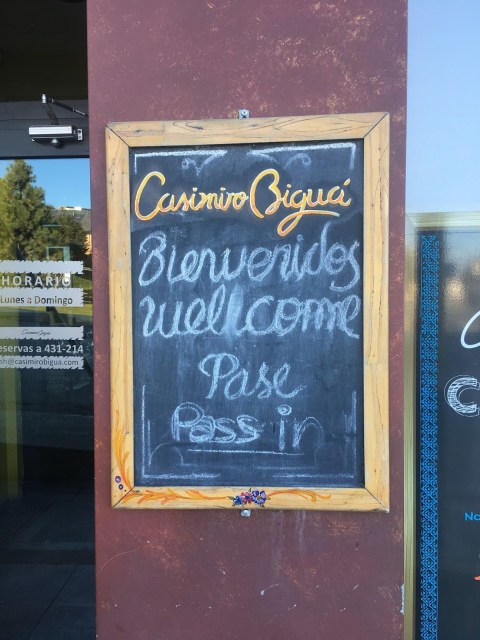 Casimiro Biguá
Bienvenidos
wellcome
Pase
Pass in
HORARIO
Lunes a Domingo
Casimiro Biguá
eservas a 431-214
sh@casimirobigua.com
C
No